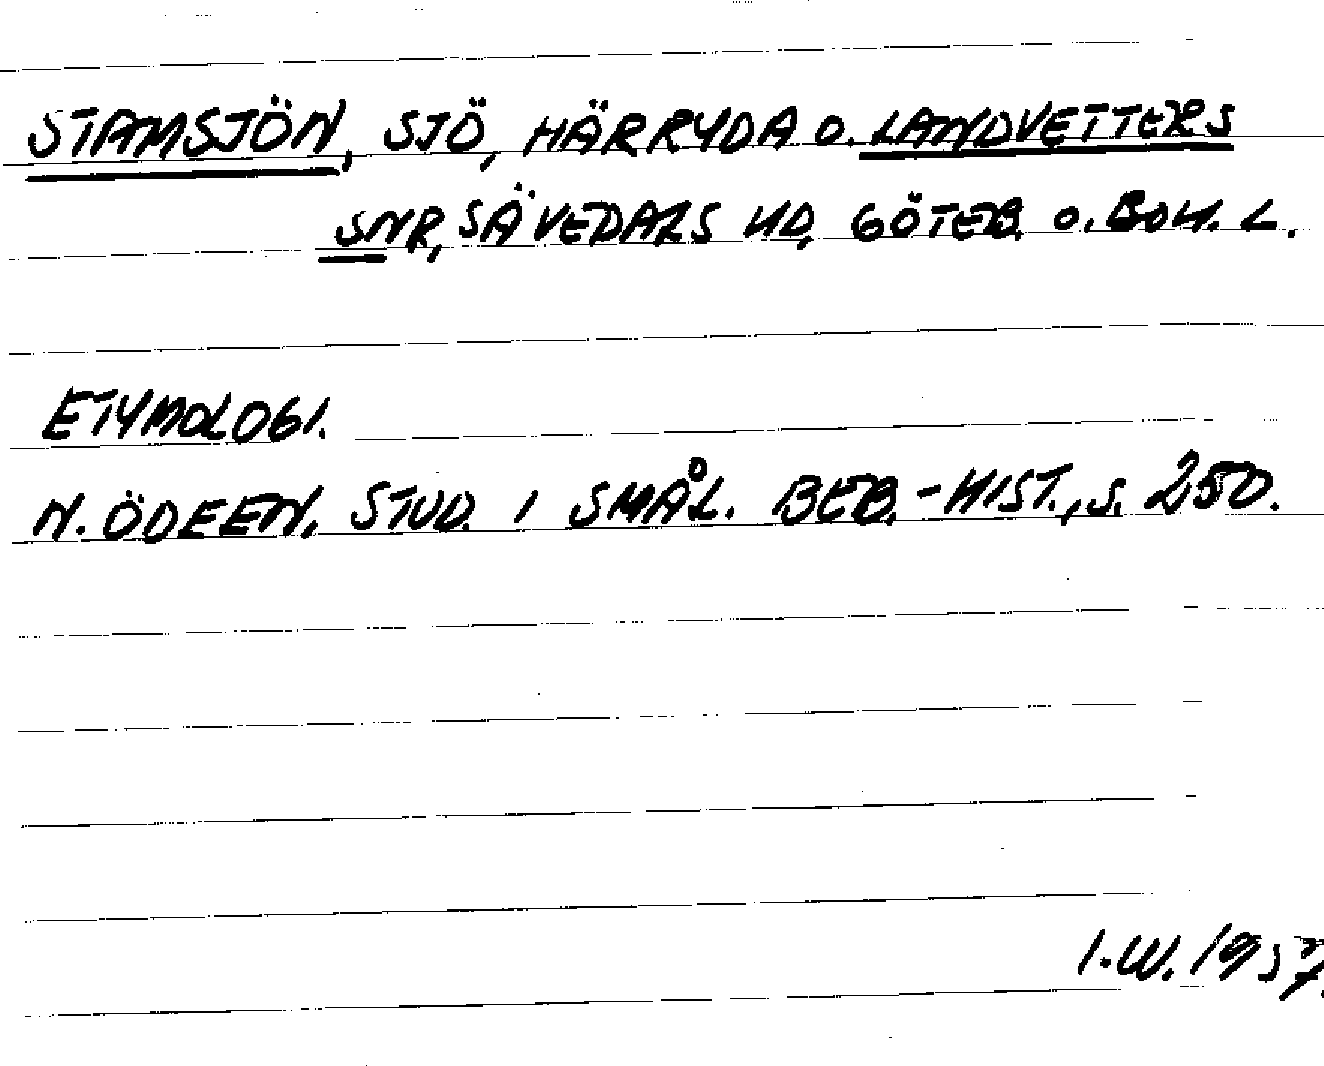 STAMSJÖN, SJÖ, HÄRRYDA O. LANDVETTERS
SNR, SÄVEDALS HD, GÖTEB. O. BOH. L.
ETYMOLOGI.
N. ÖDEEN, STUD. I SMÅL. BEB.-HIST., S. 250.
I.W. 1957.